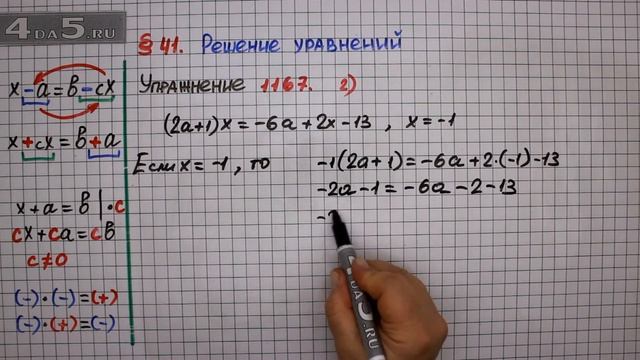 4DA5.RU
§ 41. Решение уравнений
Упражнение 1167. 2)
x-a=в-cx
x+cx=в+a
x+a=в|·c
cx+ca=cв
c≠0
(-)·(-)=(+)
(-)·(+)=(-)
(2a+1)x=-6a+2x-13, x=-1
Если x=-1, то -1(2a+1)=-6a+2·(-1)-13
-2a-1=-6a-2-13